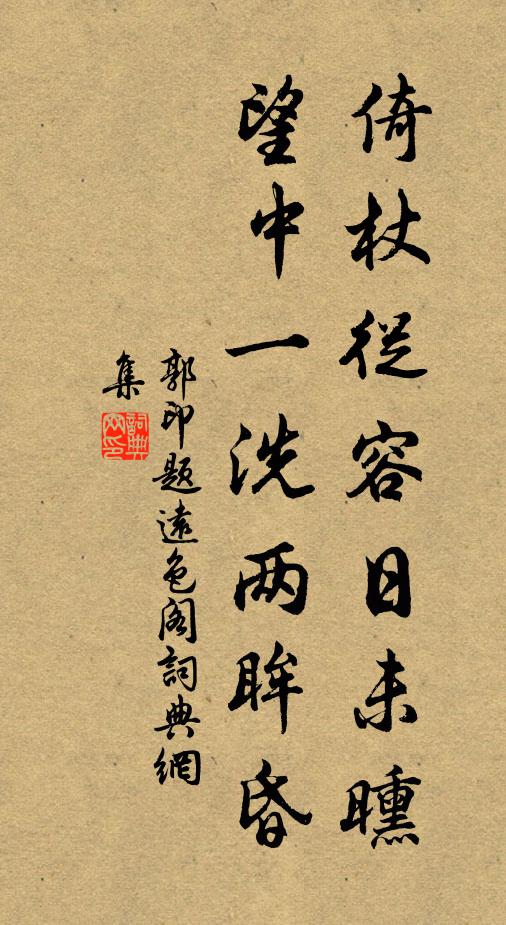 倚杖從容日未曛
望中一洗两眸昏
郭印题遠色阁詞典網
集
詞典網印